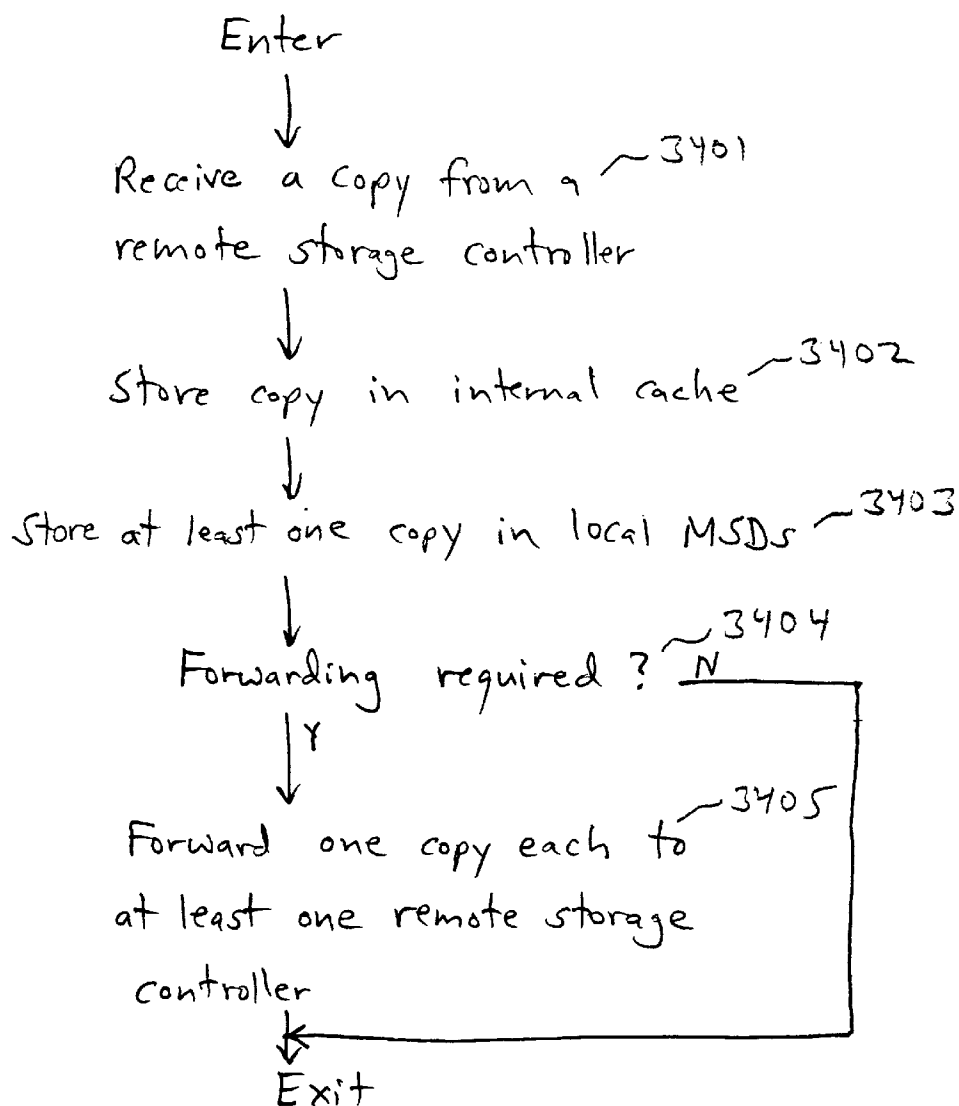 Enter
Receive a copy from a 3401
remote storage controller
Store copy in internal cache 3402
Store at least one copy in local MSDs 3403
3404
Forwarding required ? N
Y
3405
Forward one copy each to
at least one remote storage
controller
Exit